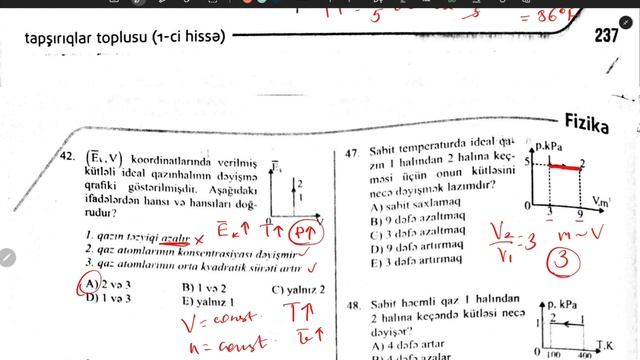 = 86°F
5
tapşırıqlar toplusu (1-ci hissə)
237
Fizika
42. (E̅ₖ,V) koordinatlarında verilmiş
kütləli ideal qazın halının dəyişmə
qrafiki göstərilmişdir. Aşağıdakı
ifadələrdən hansı və hansıları doğ-
rudur?
E̅ₖ
2
1
0
V
E̅ₖ↑ T↑ P↑
1. qazın təzyiqi azalır ×
2. qaz atomlarının konsentrasiyası dəyişmir ✓
3. qaz atomlarının orta kvadratik sürəti artır ✓
A) 2 və 3
B) 1 və 2
C) yalnız 2
D) 1 və 3
E) yalnız 1
V = const. T↑
n = const.
47. Sabit temperaturda ideal qa-
zın 1 halından 2 halına keç-
məsi üçün onun kütləsini
necə dəyişmək lazımdır?
A) sabit saxlamaq
B) 9 dəfə azaltmaq
C) 3 dəfə azaltmaq
D) 9 dəfə artırmaq
E) 3 dəfə artırmaq
p.kPa
5
2
0
3 9
V.m³
V₂/V₁ = 3 m ~ V
3
48. Sabit həcmli qaz 1 halından
2 halına keçəndə kütləsi necə
dəyişər?
A) 4 dəfə artar
B) 4 dəfə azalar
p. kPa
1
2 1
0 100 400
T.K